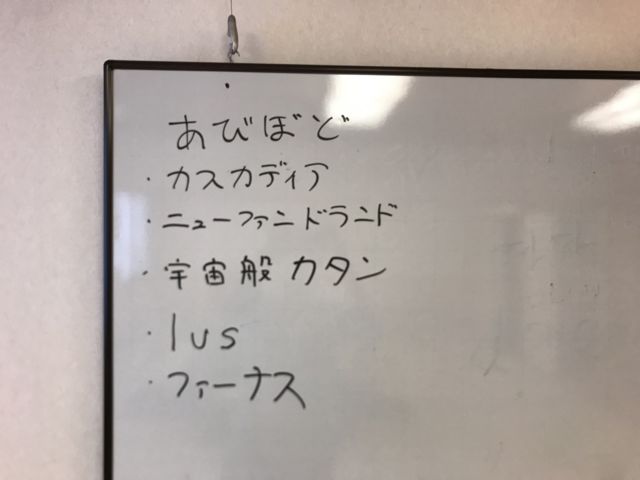 あびぼど
・カスカディア
・ニューファンドランド
・宇宙般カタン
・Ius
・ファーナス